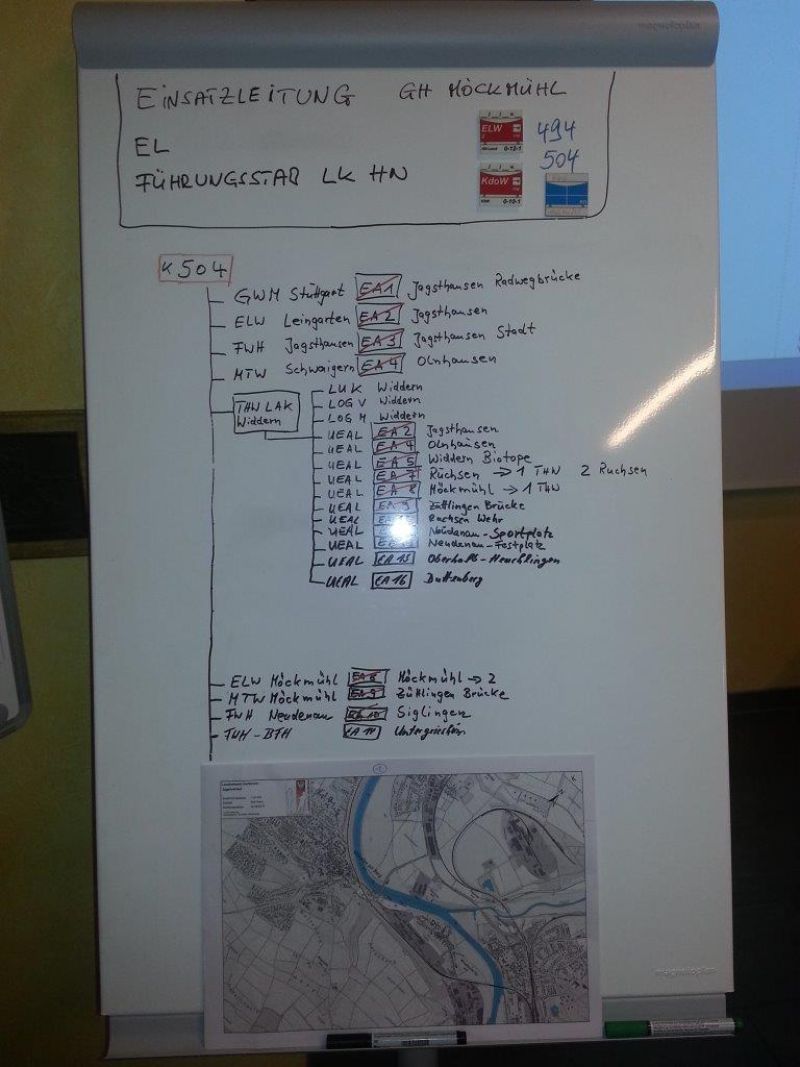 EINSATZLEITUNG GH MÖCKMÜHL
EL
ELW 494
0-12-1
504
FÜHRUNGSSTAB LK HN
KdoW
0-10-1
K504
GWM Stuttgart EA1 Jagsthausen Radwegbrücke
ELW Leingarten EA2 Jagsthausen
FWH Jagsthausen EA3 Jagsthausen Stadt
MTW Schwaigern EA4 Olnhausen
THW LAK
Widdern
LUK Widdern
LOG V Widdern
LOG M Widdern
UEAL EA2 Jagsthausen
UEAL EA4 Olnhausen
UEAL EA5 Widdern Biotope
UEAL EA7 Ruchsen → 1 THW 2 Ruchsen
UEAL EA8 Möckmühl → 1 THW
UEAL EA9 Züttlingen Brücke
UEAL Ruchsen Wehr
UEAL Neudenau-Sportplatz
UEAL Neudenau-Festplatz
UEAL EA15 Oberhalb-Herbolzheim
UEAL EA16 Duttenberg
ELW Möckmühl EA8 Möckmühl → 2
MTW Möckmühl EA9 Züttlingen Brücke
FWH Neudenau EA10 Siglingen
EA11 Untergriesheim